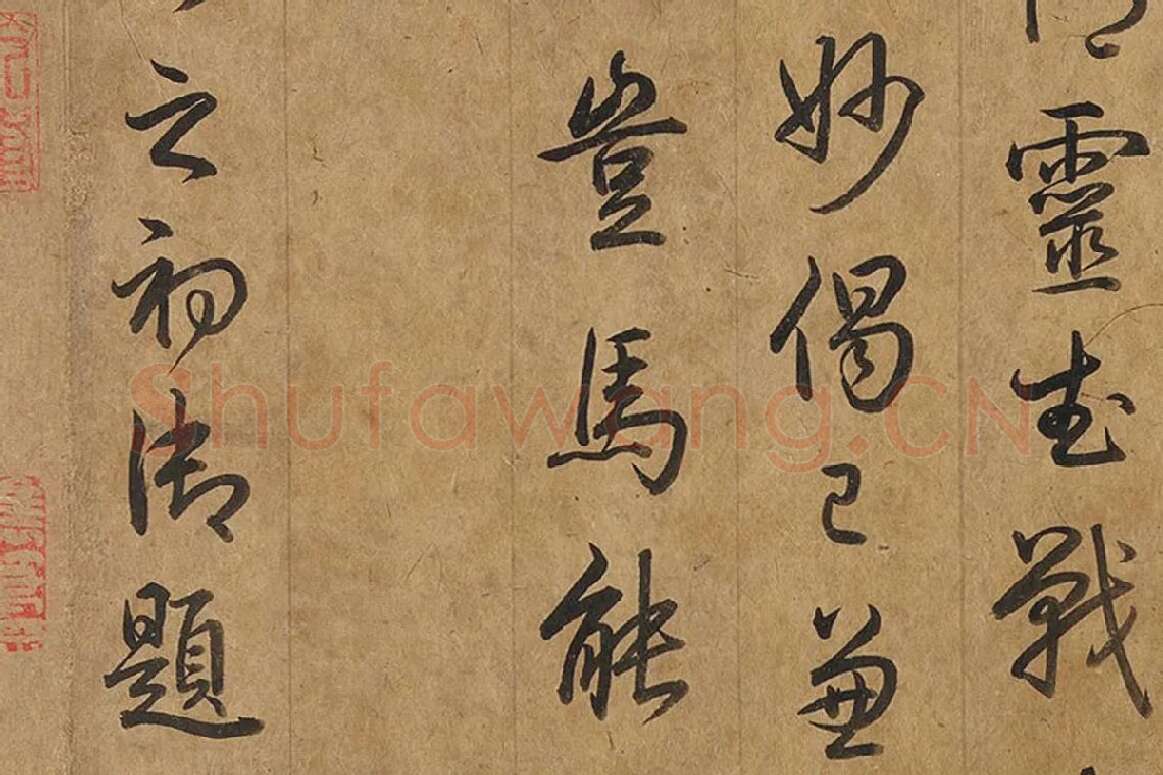 靈武戰
妙偈已兼
豈馬能
之初御題
Shufawang.CN